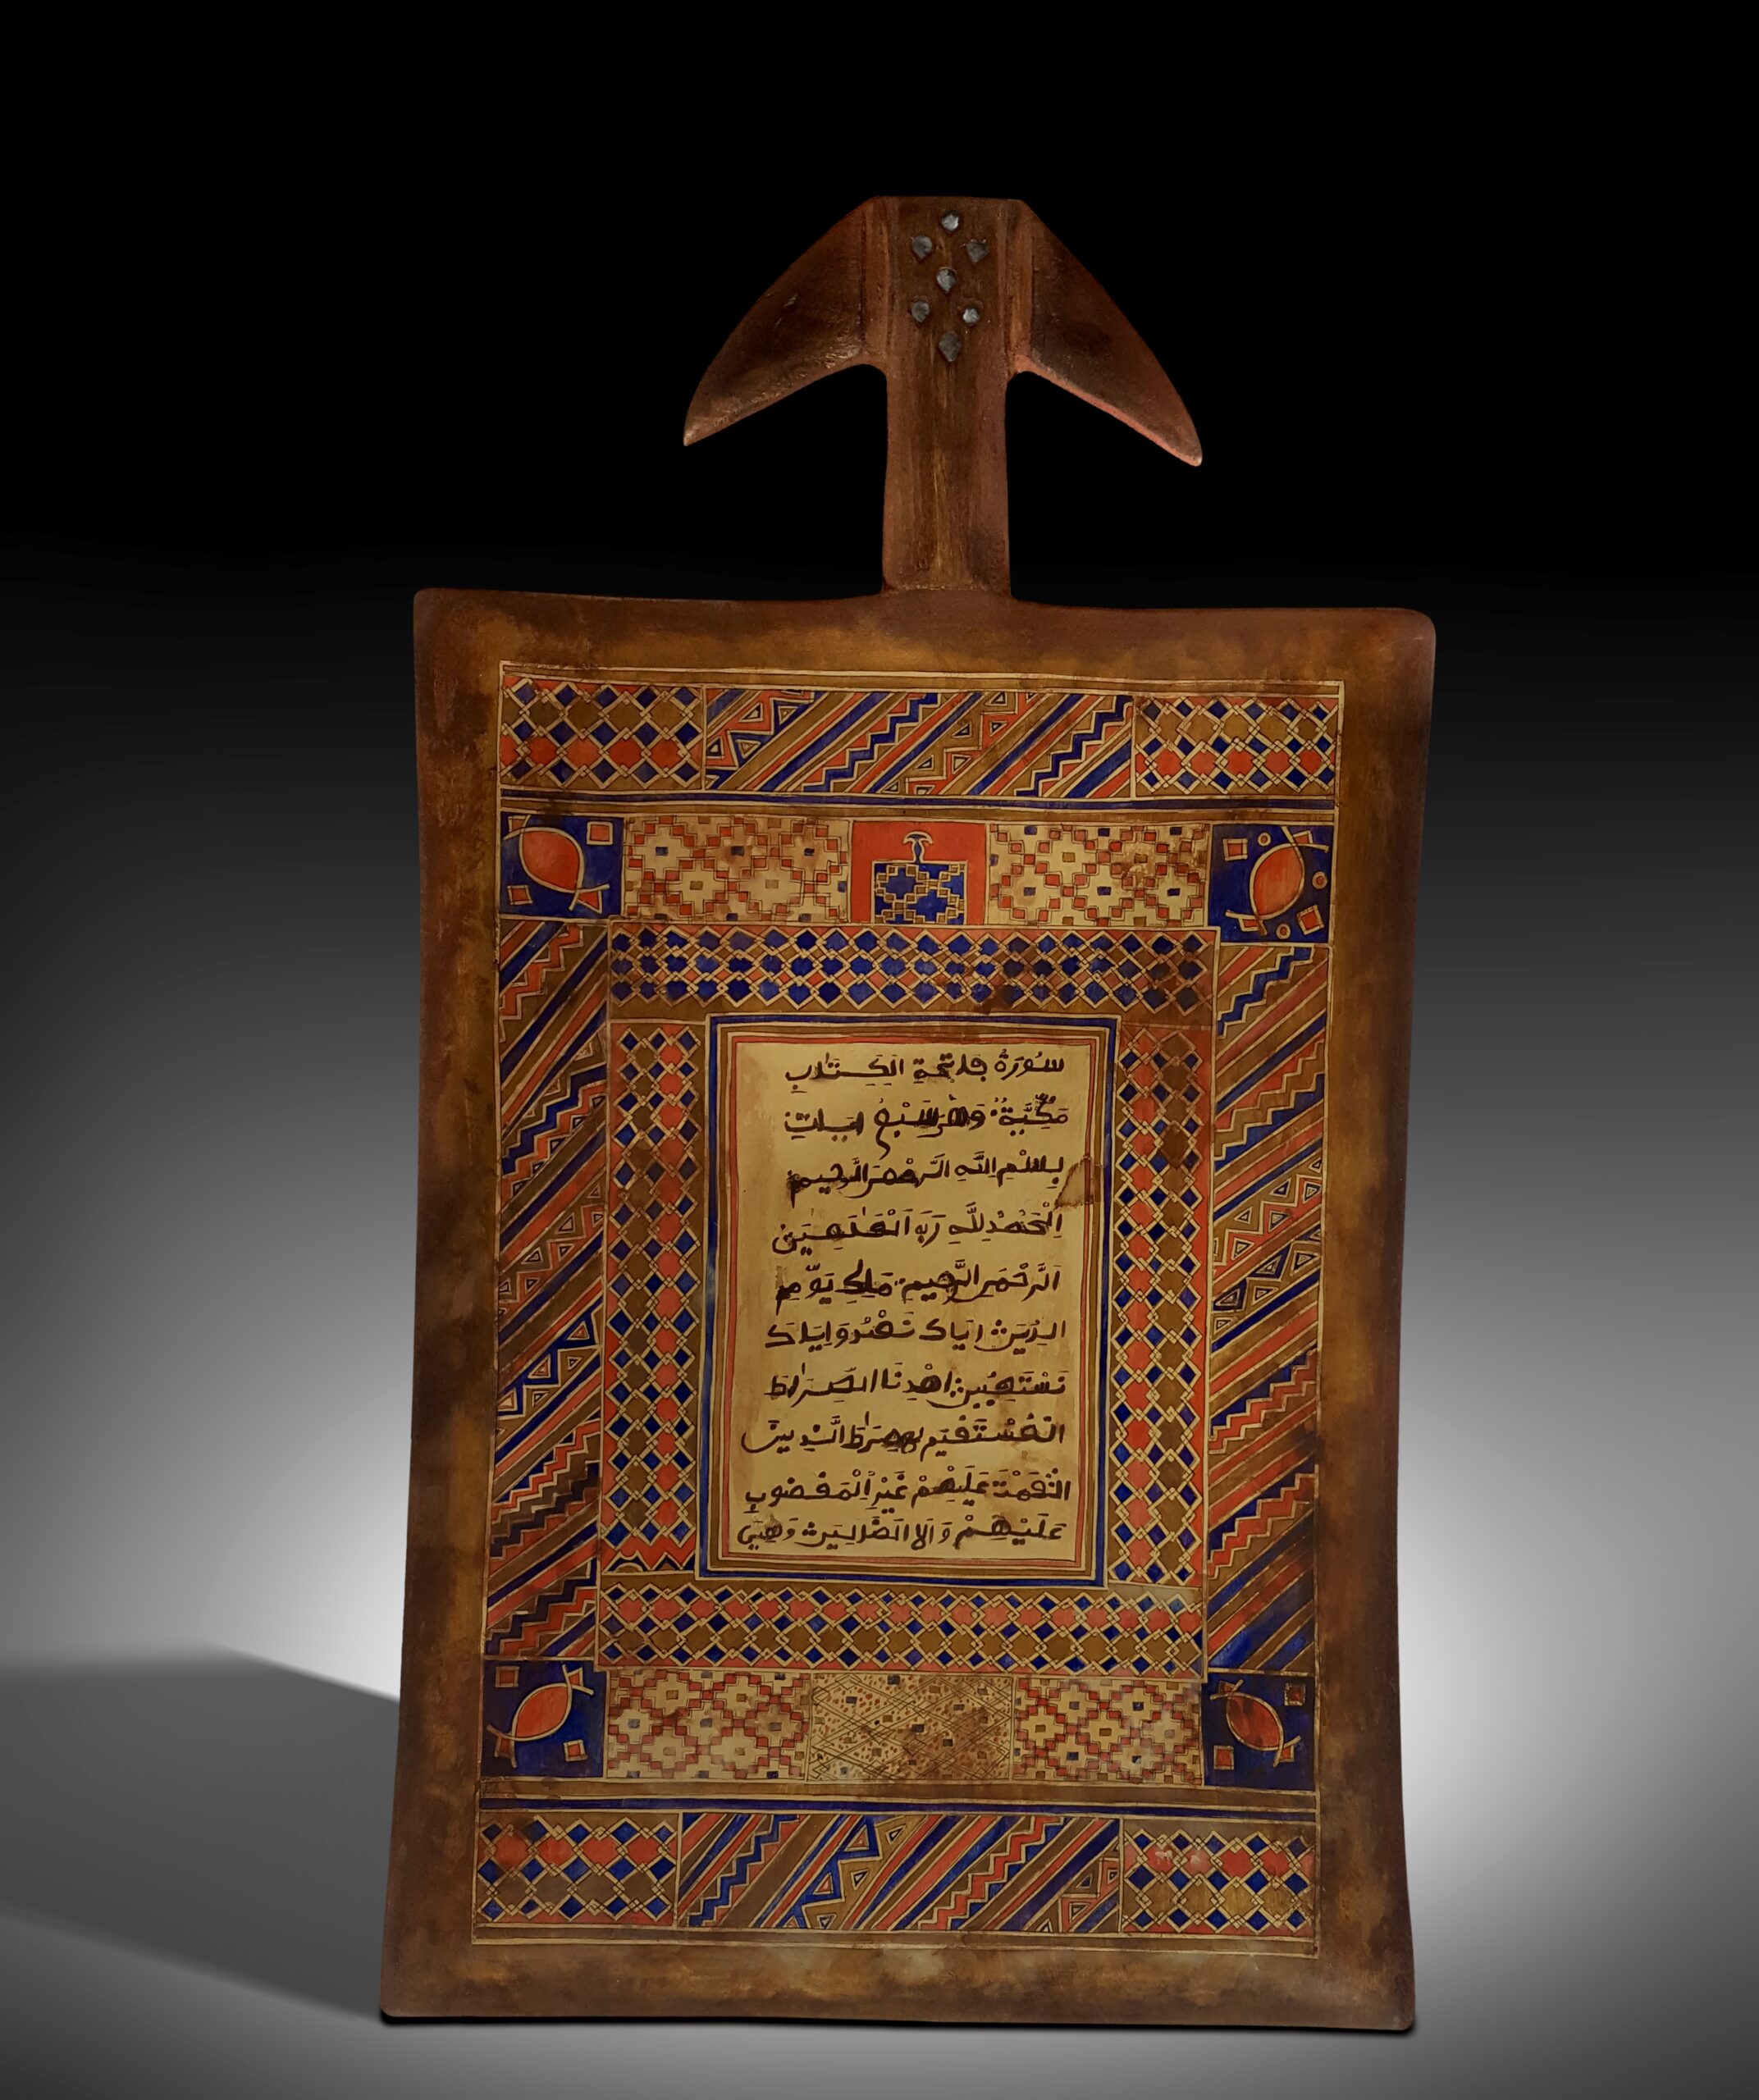 سُورَةُ فَاتِحَةِ الْكِتَابِ
مَكِّيَّةٌ وَهْىَ سَبْعُ ايَاتٍ
بِسْمِ اللَّهِ الرَّحْمَنِ الرَّحِيمِ
الْحَمْدُ لِلَّهِ رَبِّ الْعَلَمِينَ
الرَّحْمَنِ الرَّحِيمِ مَلِكِ يَوْمِ
الدِّينِ اِيَّاكَ نَعْبُدُ وَاِيَّاكَ
نَسْتَعِينُ اهْدِنَا الصِّرَاطَ
الْمُسْتَقِيمَ صِرَاطَ الَّذِينَ
انْعَمْتَ عَلَيْهِمْ غَيْرِ الْمَغْضُوبِ
عَلَيْهِمْ وَلَا الضَّالِّينَ